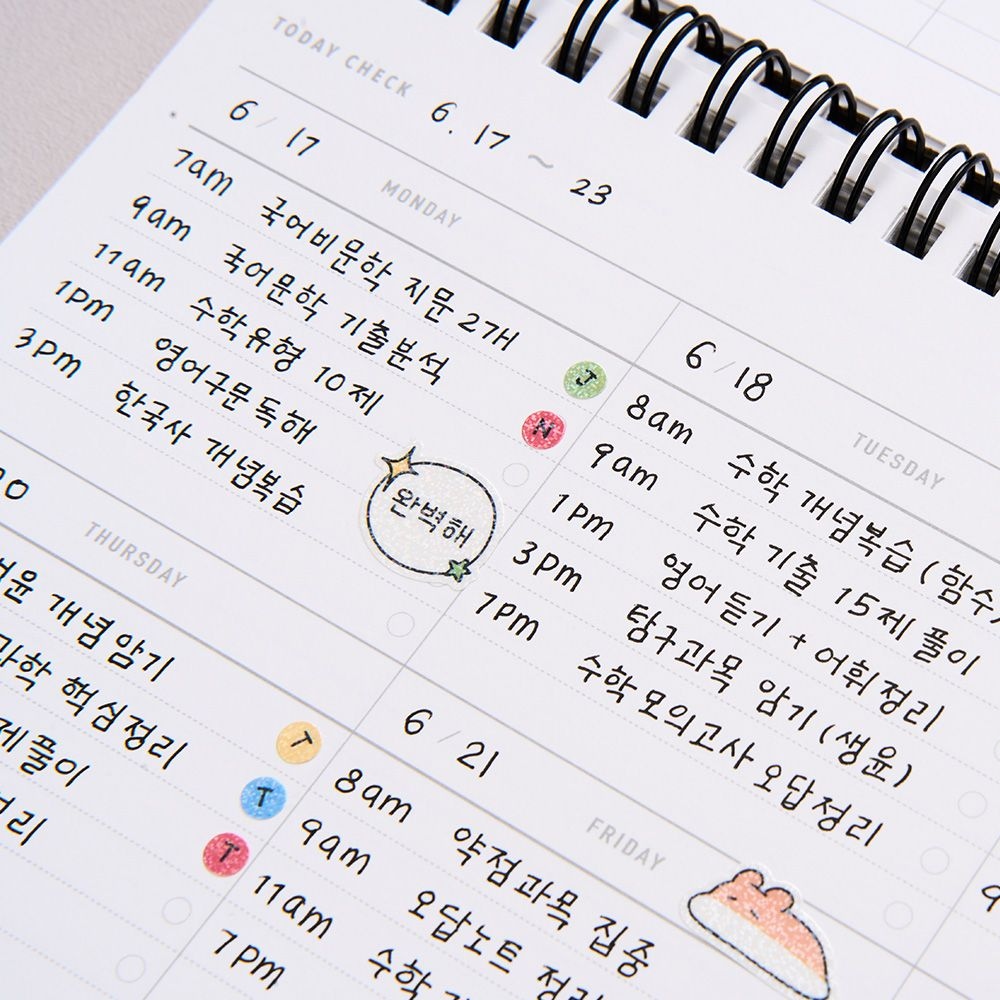 TODAY CHECK 6. 17 ~ 23
6 / 17 MONDAY
7am 국어비문학 지문 2개
9am 국어문학 기출분석
11am 수학유형 10제
1pm 영어구문독해
3pm 한국사 개념복습
J
N
완벽해
6 / 18 TUESDAY
8am 수학 개념복습 (함수
9am 수학 기출 15제 풀이
1pm 영어듣기 + 어휘정리
3pm 탐구과목 암기 (생윤)
7pm 수학모의고사 오답정리
THURSDAY
개념암기
핵심정리
풀이
T
T
T
6 / 21 FRIDAY
8am 약점과목 집중
9am 오답노트
11am 수학
7pm